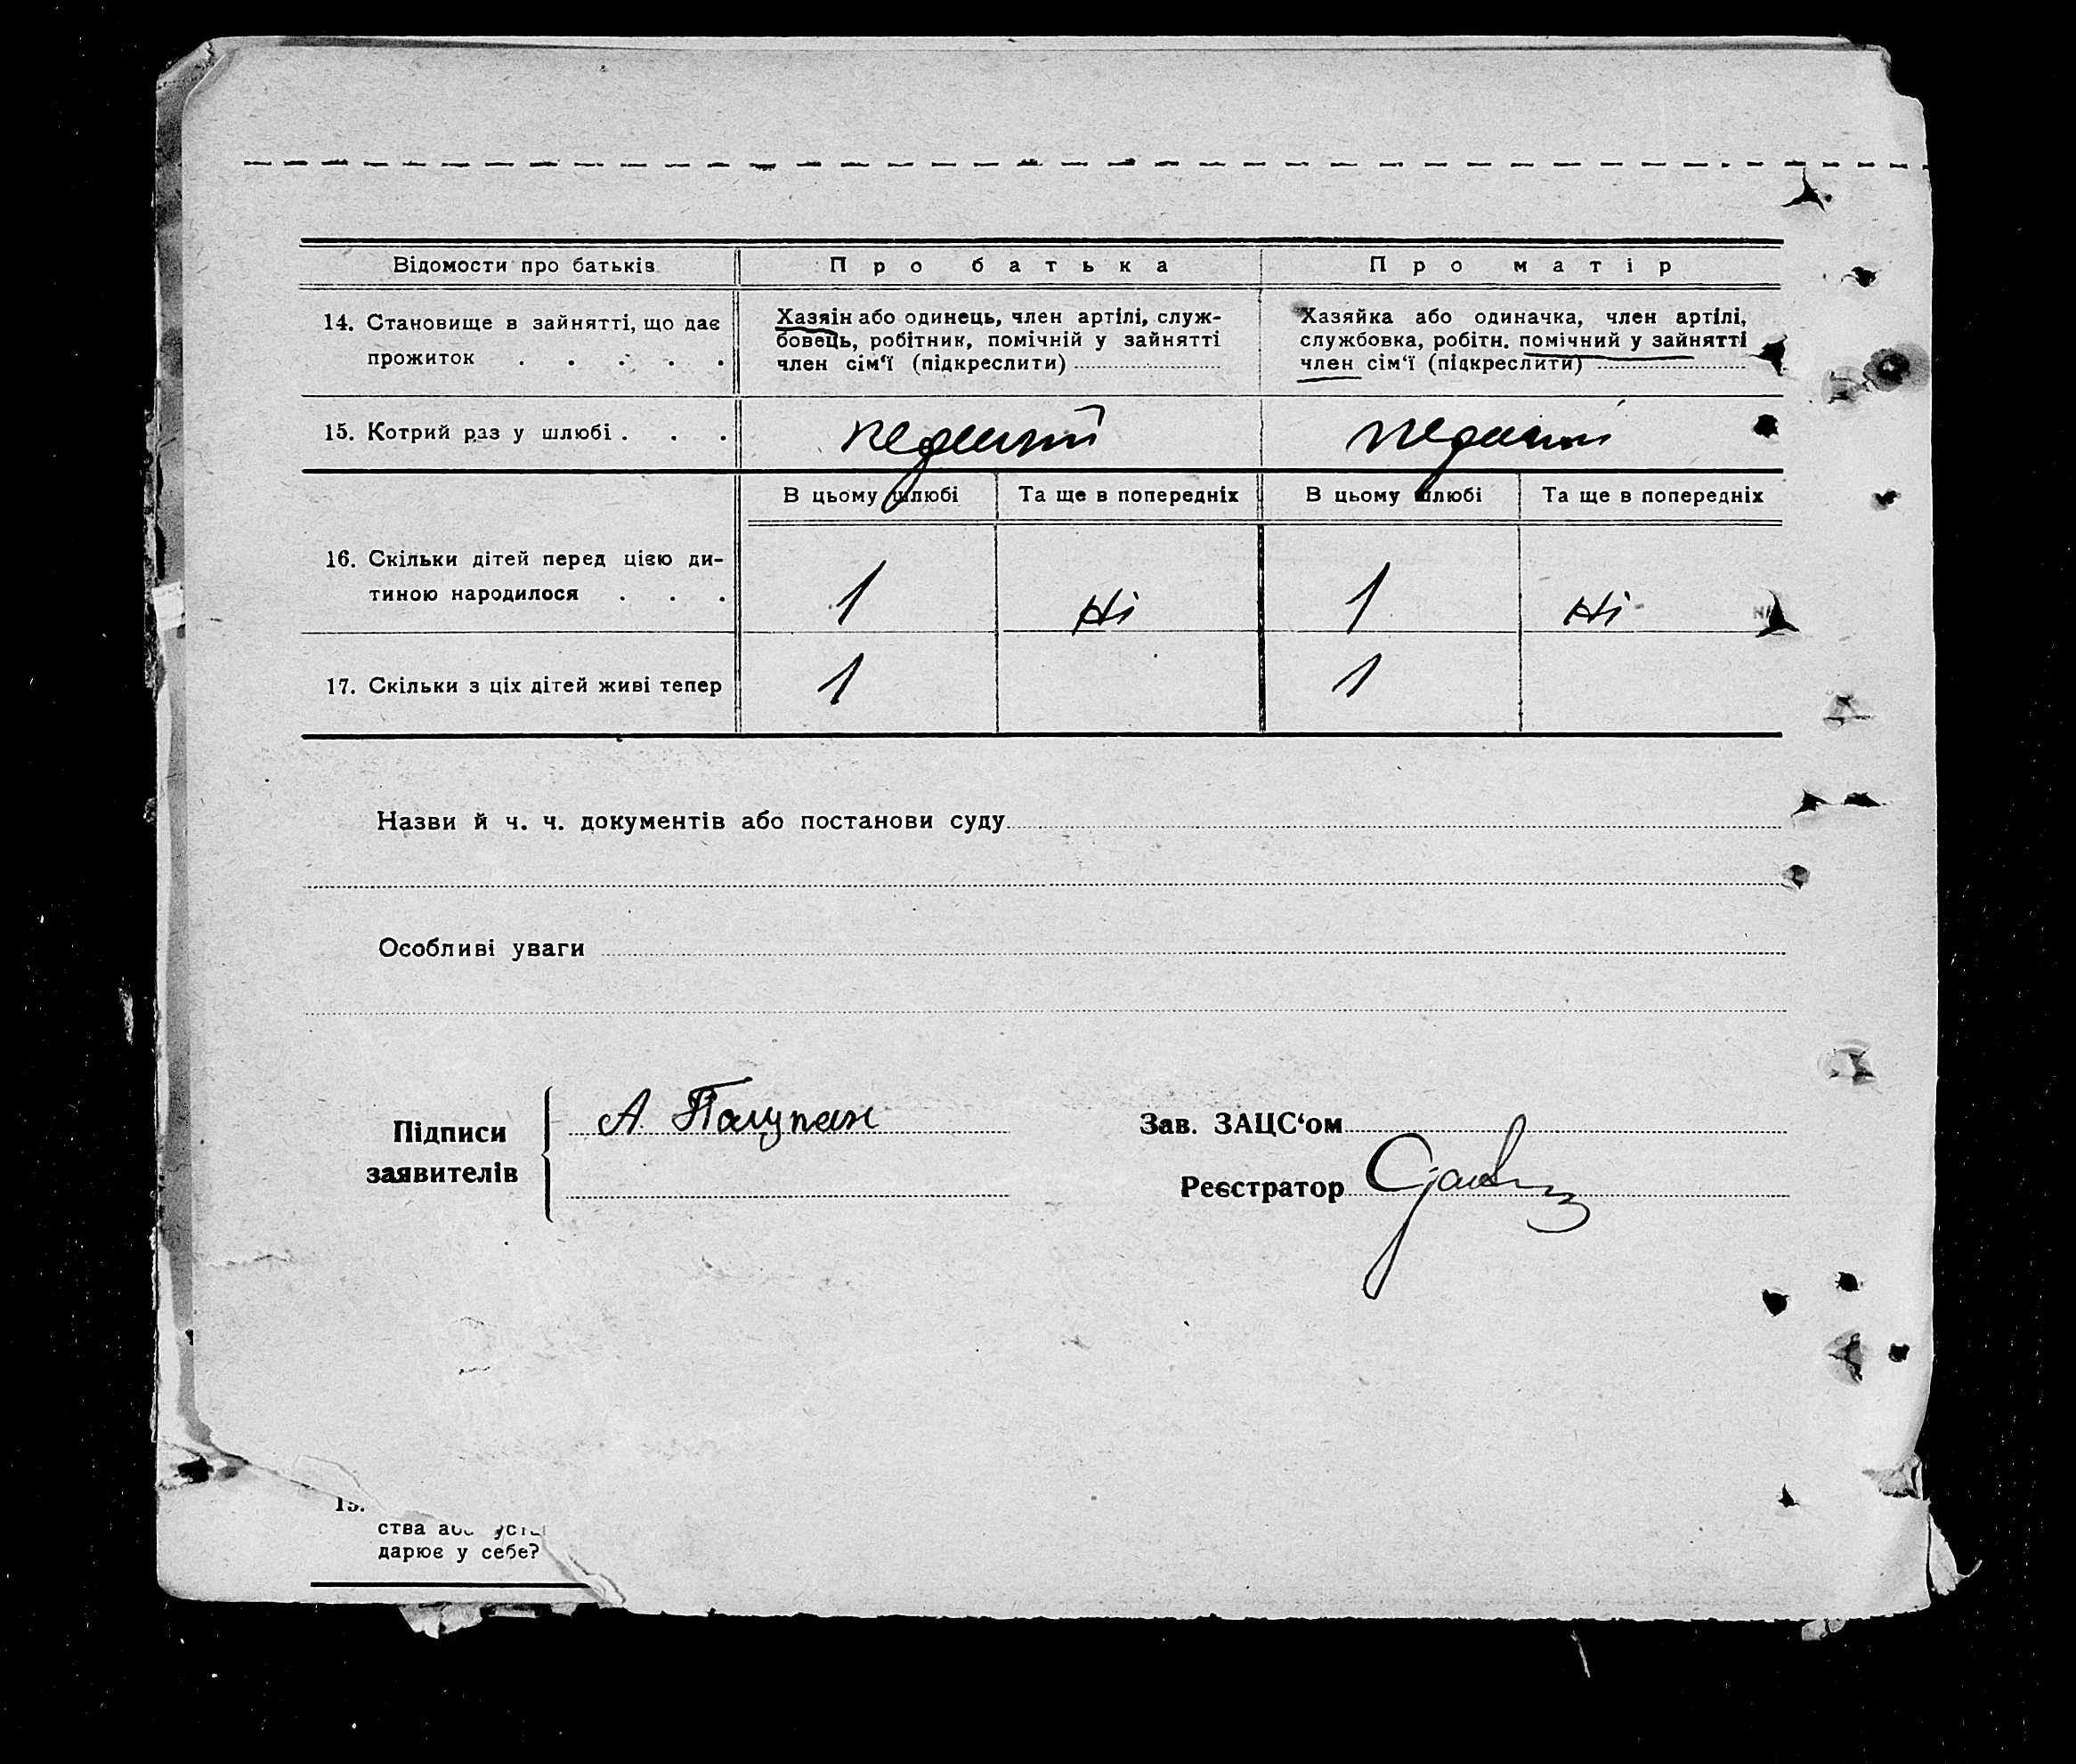 Відомости про батьків
Про батька
Про матір
14. Становище в зайнятті, що дає
прожиток . . . . .
Хазяїн або одинець, член артілі, служ-
бовець, робітник, помічній у зайнятті
член сім‘ї (підкреслити)
Хазяйка або одиначка, член артілі,
службовка, робітн. помічний у зайнятті
член сім‘ї (підкреслити)
15. Котрий раз у шлюбі . . .
перший
перший
В цьому шлюбі
Та ще в попередніх
В цьому шлюбі
Та ще в попередніх
16. Скільки дітей перед цією ди-
тиною народилося . . .
1
Ні
1
Ні
17. Скільки з ціх дітей живі тепер
1
1
Назви й ч. ч. документів або постанови суду
Особливі уваги
Підписи
заявителів
А Полупан
Зав. ЗАЦС‘ом
Реєстратор
ства або
дарює у себе?